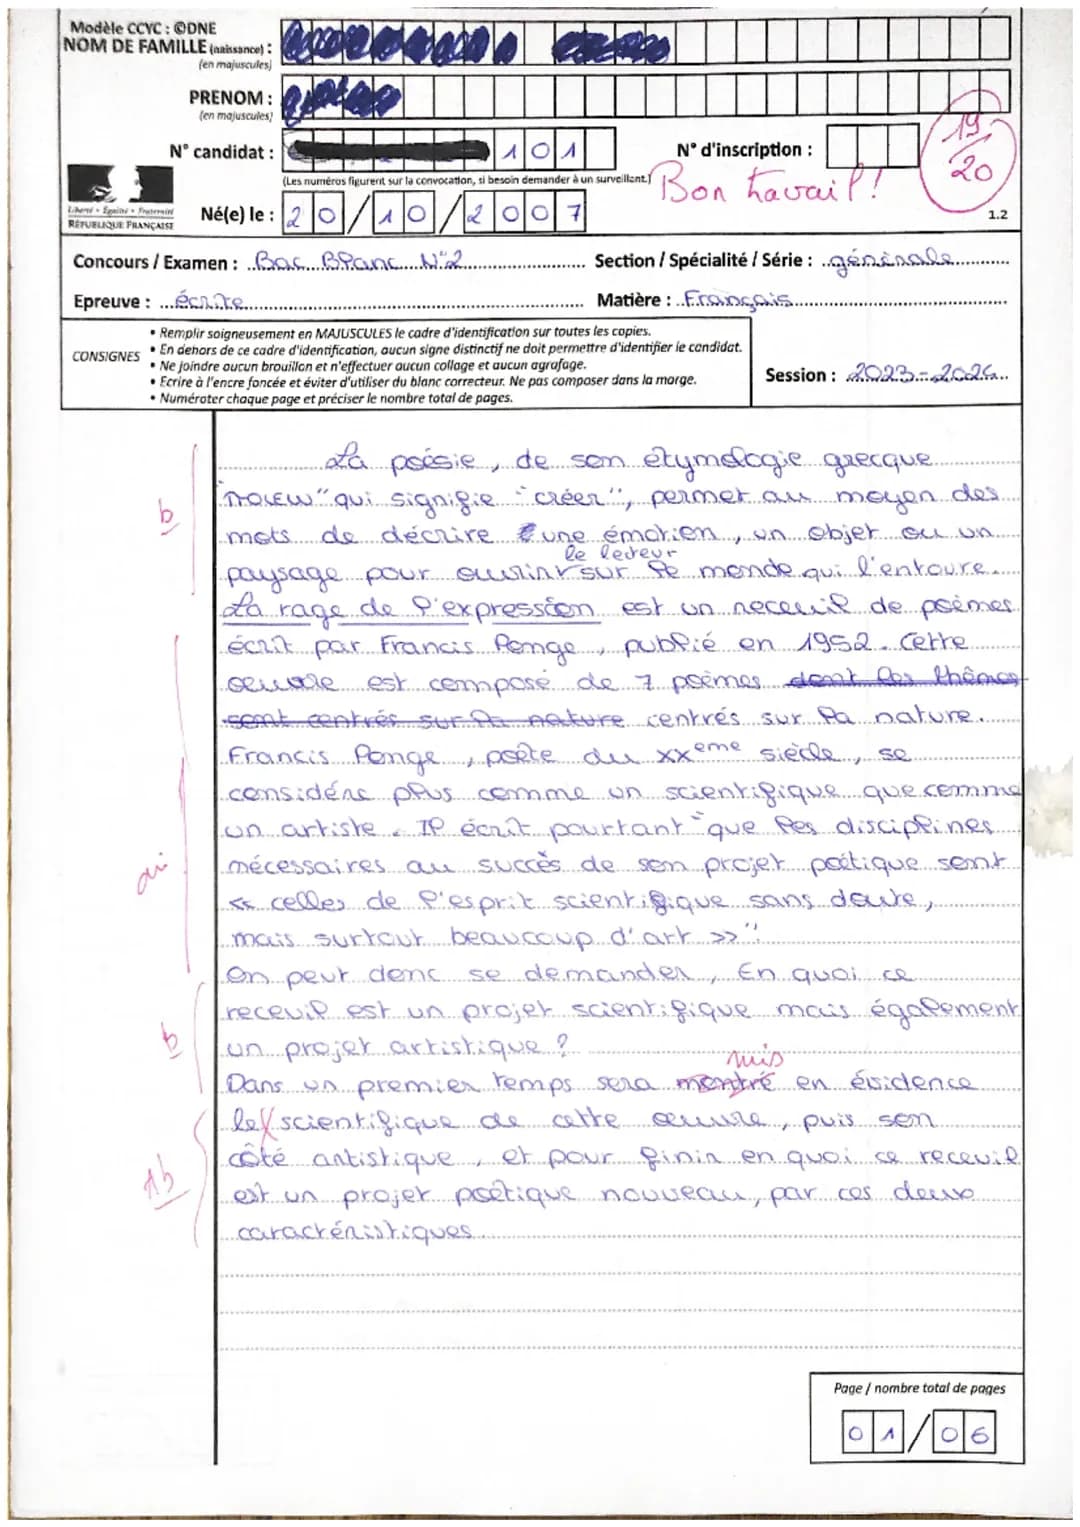 Modèle CCYC : ©DNE
NOM DE FAMILLE (naissance) :
(en majuscules)
PRENOM :
(en majuscules)
N° candidat : 101
N° d'inscription :
19/20
(Les numéros figurent sur la convocation, si besoin demander à un surveillant.)
Bon travail !
Liberté • Égalité • Fraternité
RÉPUBLIQUE FRANÇAISE
Né(e) le : 20/10/2007
1.2
Concours / Examen : Bac Blanc N°2
Section / Spécialité / Série : générale
Epreuve : écrite
Matière : Français
CONSIGNES
• Remplir soigneusement en MAJUSCULES le cadre d'identification sur toutes les copies.
• En dehors de ce cadre d'identification, aucun signe distinctif ne doit permettre d'identifier le candidat.
• Ne joindre aucun brouillon et n'effectuer aucun collage et aucun agrafage.
• Ecrire à l'encre foncée et éviter d'utiliser du blanc correcteur. Ne pas composer dans la marge.
• Numéroter chaque page et préciser le nombre total de pages.
Session : 2023-2024
La poésie, de son étymologie grecque
"ποιεω" qui signifie "créer", permet au moyen des
b
mots de décrire une émotion, un objet ou un
le lecteur
paysage pour ouvrir sur le monde qui l'entoure.
La rage de l'expression est un receuil de poèmes
écrit par Francis Ponge, publié en 1952. Cette
oeuvre est composé de 7 poèmes dont les thèmes
sont centrés sur la nature centrés sur la nature.
Francis Ponge, poète du XXeme siècle, se
considére plus comme un scientifique que comme
un artiste. Il écrit pourtant "que les disciplines
nécessaires au succès de son projet poétique sont
<< celles de l'esprit scientifique sans doute,
mais surtout beaucoup d'art >>".
On peut donc se demander, En quoi ce
receuil est un projet scientifique mais également
b
un projet artistique ?
mis
Dans un premier temps sera montré en évidence
le scientifique de cette oeuvre, puis son
côté artistique, et pour finir en quoi ce receuil
Ab
est un projet poétique nouveau, par ces deux
caractéristiques.
Page / nombre total de pages
01/06